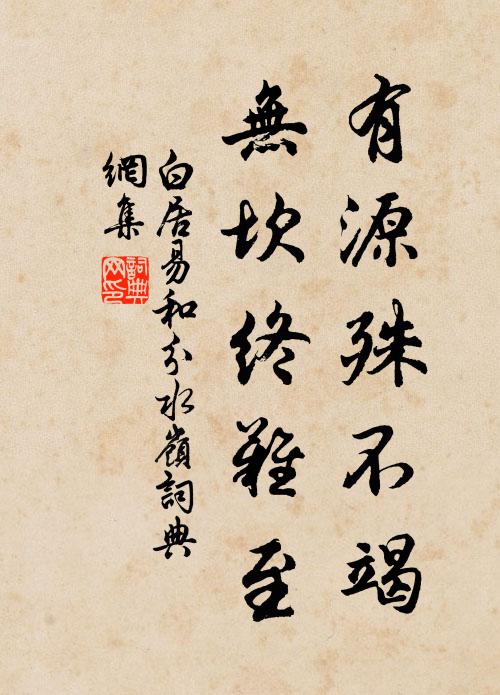 有源殊不竭
無坎終難至
白居易和分水嶺詞典
網集
詞典網印